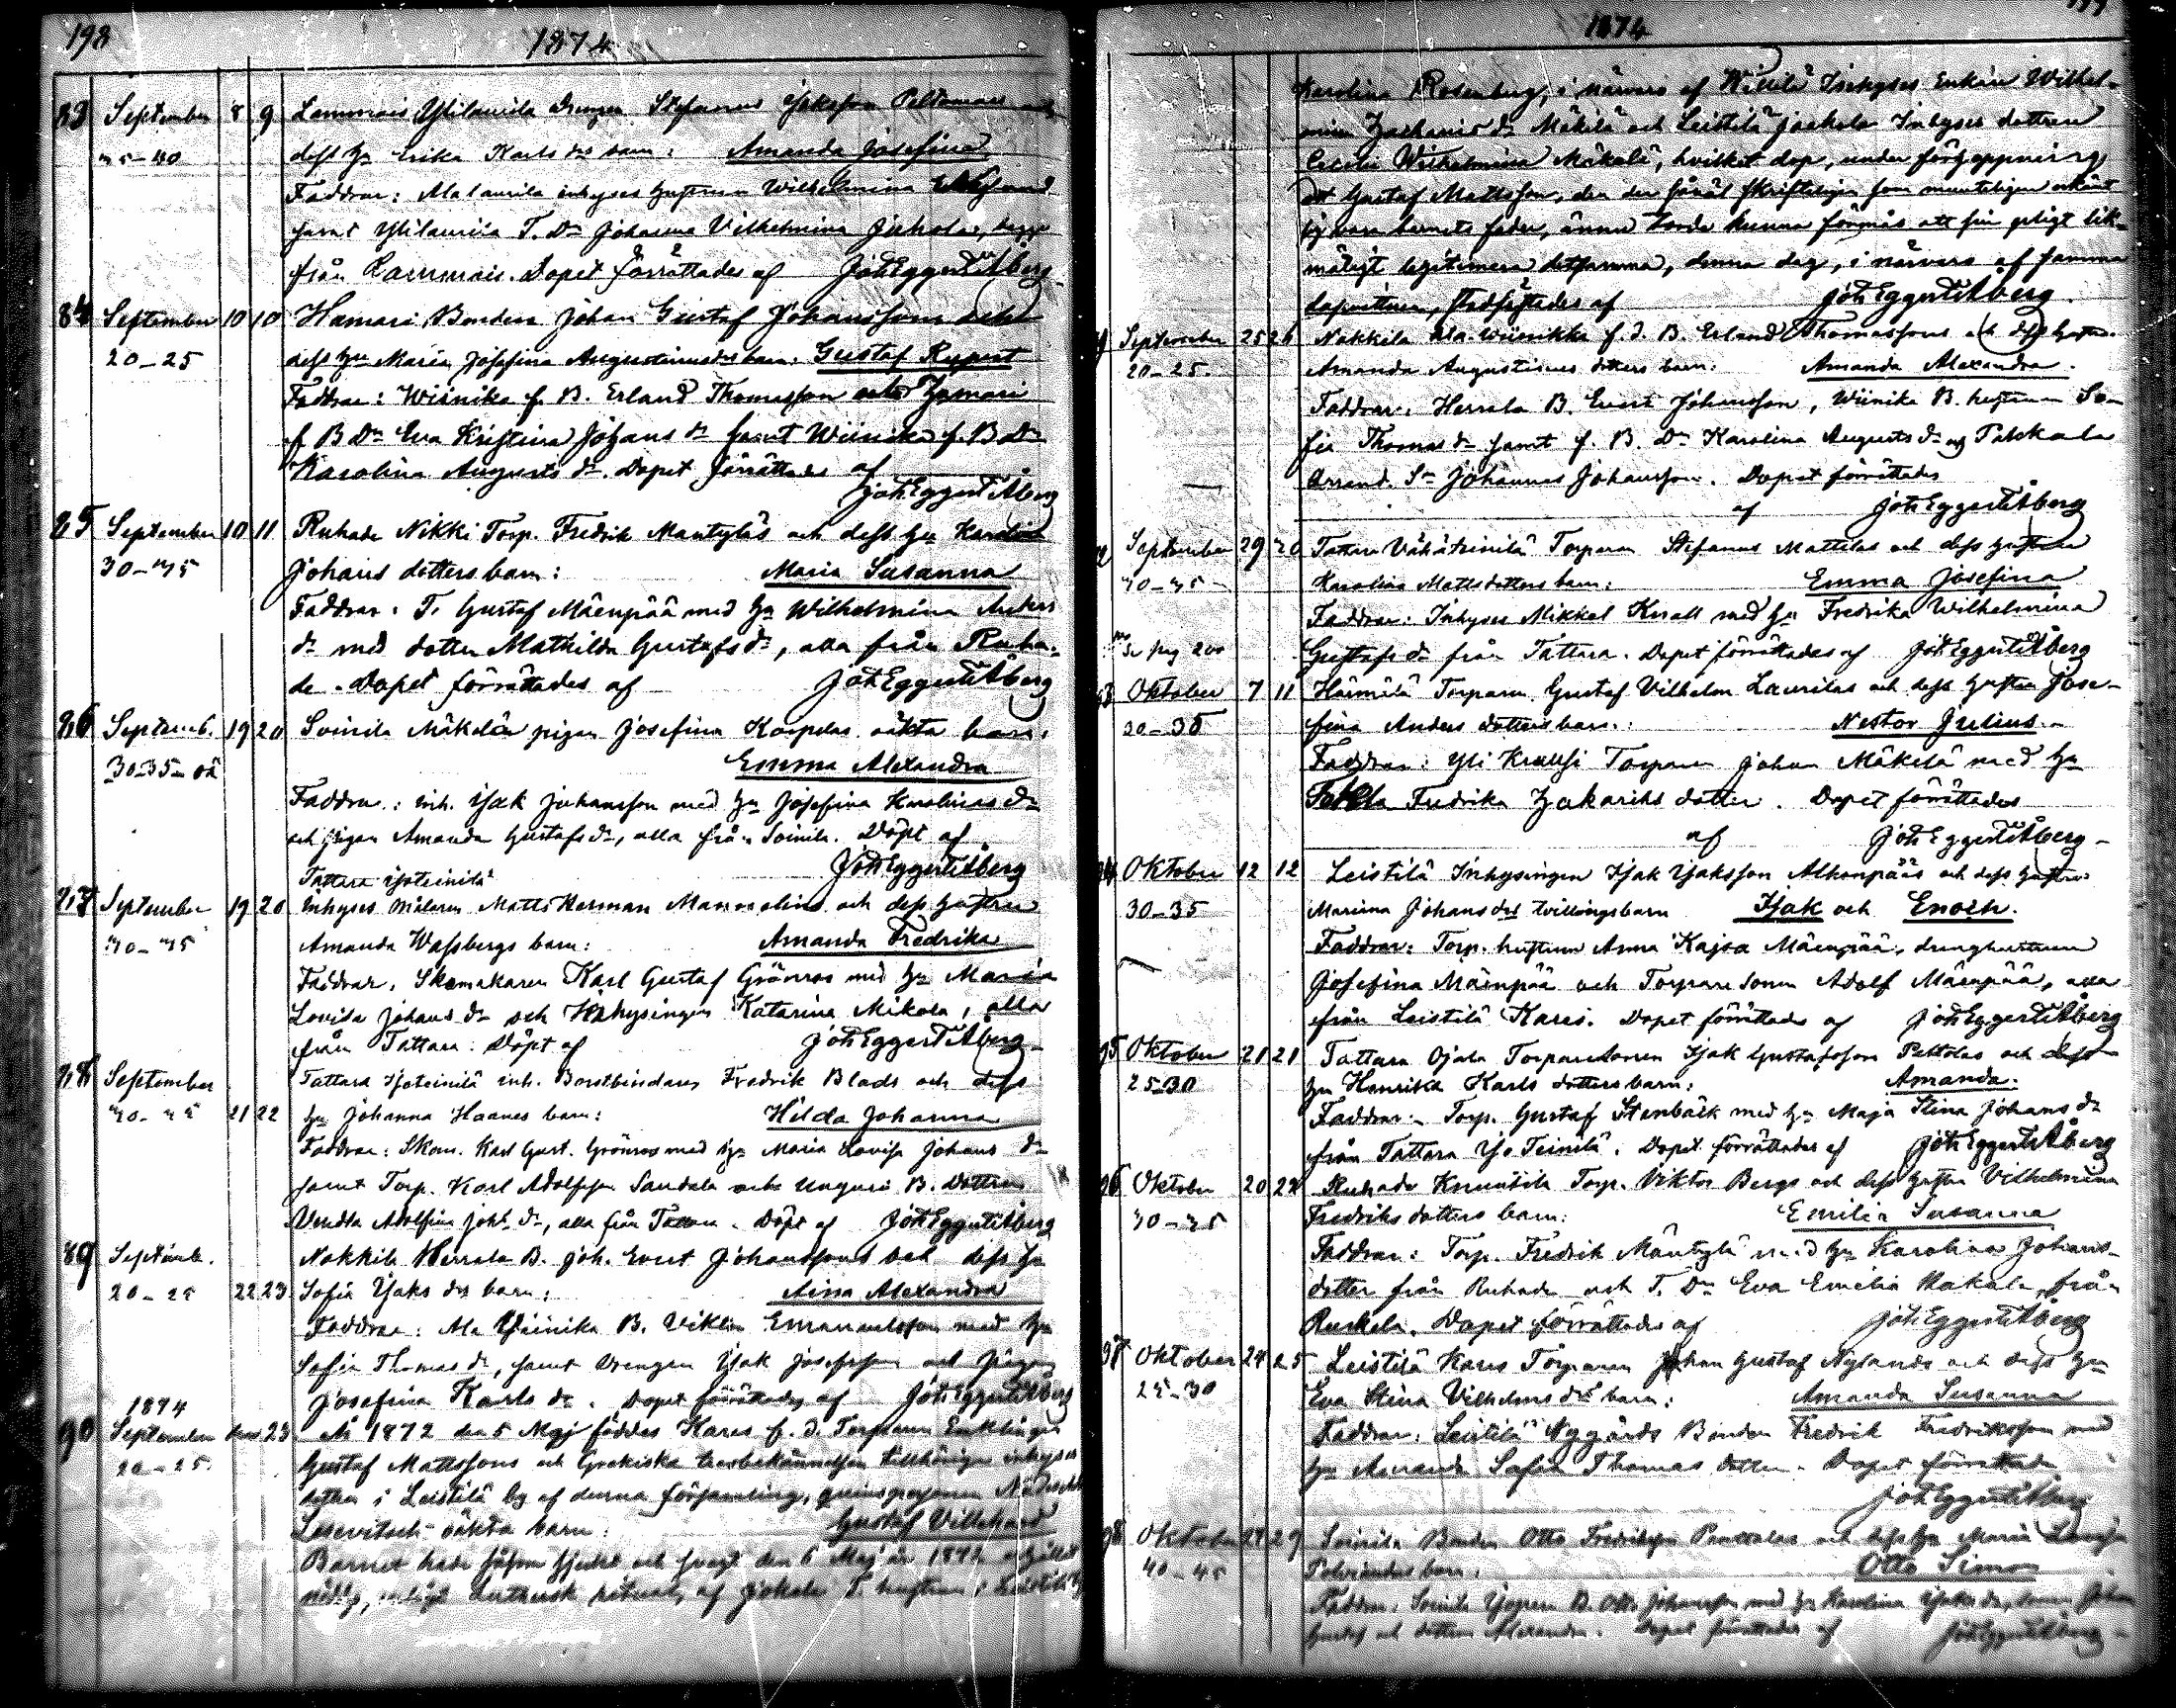 198
1874
83 September 8 9 Lammais Ylilaurila drengen Stefanus Isaksson Peltomaas och
35-40 dess hu Erika Karls drs barn: Amanda Josefina
Faddrar: Alalaurila inhyses hustrun Wilhelmina
samt Ylilaurila T. Dr Johanna Vilhelmina Juhola, begge
från Lammais. Dopet förrättades af Joh Eggert Åberg
84 September 10 10 Hamari Bonden Johan Gustaf Johanssons och
20-25 dess hu Maria Josefina Augustinusdrs barn: Gustaf Rupert
Faddrar: Wiinika f. B. Erland Thomasson och Hamari
f. B Dr Eva Kristina Johans dr samt Wiinika f. B Dr
Karolina Augusts dr. Dopet förrättades af
Joh Eggert Åberg
85 September 10 11 Ruhade Nikki Torp. Fredrik Mäntyläs och dess hu Karolina
30-35 Johans dotters barn: Maria Susanna
Faddrar: T. Gustaf Mäenpää med hu Wilhelmina Anders
dr med dotter Mathilda Gustafs dr, alla från Ruha-
de. Dopet förrättades af Joh Eggert Åberg
86 Septemb. 19 20 Soinila Mäkelä pigan Josefina Korpelas oäkta barn:
30-35 oä Emma Alexandra
Faddrar: inh. Isak Johansson med hu Josefina Karolina dr
och pigan Amanda Gustafs dr, alla från Soinila. Döpt af
Joh Eggert Åberg
Tattara Isoteinilä
87 September 19 20 Inhyses Målaren Matts Herman Mannelins och dess hustru
30-35 Amanda Wassbergs barn: Amanda Fredrika
Faddrar: Skomakaren Karl Gustaf Grönroos med hu Maria
Lovisa Johans dr och Inhysingen Katarina Mikola, alla
från Tattara. Döpt af Joh Eggert Åberg
88 September Tattara Isoteinilä inh. Borstbindaren Fredrik Blads och dess
21 22 hu Johanna Haanes barn: Hilda Johanna
Faddrar: Skom. Karl Gust. Grönroos med hu Maria Lovisa Johans dr
samt Torp. Karl Adolfsson Sandala och Unguri B. Dottren
Vendla Adolfina Johs dr, alla från Tattara. Döpt af Joh Eggert Åberg
89 Septemb. Nakkila Herrala B. Joh. Evert Johanssons och dess hu
20-25 22 23 Sofia Isaks drs barn: Aina Alexandra
Faddrar: Ala Wiinika B. Viktor Emanuelsson med hu
Sofia Thomas dr, samt drengen Isak Josefsson och pigan
Josefina Karls dr. Dopet förrättades af Joh Eggert Åberg
1874
90 September 23 År 1872 den 5 Maj föddes Kares f. d. Torparen Enklingen
20-25 Gustaf Mattssons och Grekiska trosbekännelsen tillhörige inhyses
dotter i Leistilä by af denna församling, qvinspersonen
oäkta barn: Gustaf Villehard
Barnet hade såsom sjukt och svagt den 6 Maj år 1872 erhållit
nöddop, enligt Luthersk ritual, af Jokala T. hustrun i Leistilä by
1874
Karolina Rosenberg, i närvaro af Inhyses Enkan Wilhel-
mina Zachanis dr Mäkilä och Leistilä Jaakola Inhyses dottren
Cecilia Wilhelmina Mäkelä, hvilket dop, under förhoppning
att Gustaf Mattsson, den der såväl skriftligen som muntligen erkänt
sig vara barnets fader, ännu torde kunna förmås att sin pligt lik-
mäligt legitimera detsamma, denna dag, i närvaro af samma
dopvittnen, stadfästades af Joh Eggert Åberg.
September 25 26 Nakkila Ala Wiinikka f. d. B. Erland Thomassons och dess hustru
20-25 Amanda Augustinus dotters barn: Amanda Alexandra.
Faddrar: Herrala B. Evert Johansson, Wiinika B. hustrun So-
fia Thomas dr samt f. B. Dr Karolina Augusts dr och
Arrend. Sn Johannes Johansson. Dopet förrättades
af Joh Eggert Åberg
September 29 30 Tattara Vähäteinilä Torparen Stefanus Mattilas och dess hustru
Karolina Mattsdotters barn: Emma Josefina
Faddrar: Inhyses Mikkel Knall med hu Fredrika Wilhelmina
Se pag 200 Gustafs dr från Tattara. Dopet förrättades af Joh Eggert Åberg
Oktober 7 11 Torparen Gustaf Vilhelm Laurilas och dess hustru Jose-
30-35 fina Anders dotters barn: Nestor Julius
Faddrar: Yli Krausi Torparen Johan Mäkilä med hu
Fredrika Zakarias dotter. Dopet förrättades
af Joh Eggert Åberg
94 Oktober 12 12 Leistilä Inhysingen Isak Isaksson Alhonpääs och dess hustru
30-35 Mariana Johans drs tvillingsbarn Isak och Enoch.
Faddrar: Torp. hustrun Anna Kajsa Mäenpää, drenghustrun
Josefina Mäenpää och Torpare sonen Adolf Mäenpää, alla
från Leistilä Kares. Dopet förrättades af Joh Eggert Åberg
95 Oktober 21 21 Tattara Ojala Torparesonen Isak Gustafsson Peltolas och dess
25-30 hu Henrika Karls dotters barn: Amanda.
Faddrar: Torp. Gustaf Stenbäck med hu Maja Stina Johans dr
från Tattara Iso Teinilä. Dopet förrättades af Joh Eggert Åberg
96 Oktober 20 22 Ruhade Knuutila Torp. Viktor Bergs och dess hustru Vilhelmina
30-35 Fredriks dotters barn: Emilia Susanna
Faddrar: Torp. Fredrik Mäntylä med hu Karolina Johans-
dotter från Ruhade och T. Dr Eva Emilia Hakala från
Ruskela. Dopet förrättades af Joh Eggert Åberg
97 Oktober 24 25 Leistilä Kares Torparen Johan Gustaf Nylands och dess hu
25-30 Eva Stina Vilhelms drs barn: Amanda Susanna
Faddrar: Leistilä Nygårds Bonden Fredrik Fredriksson med
hu Amanda Sofia Thomas dotter. Dopet förrättade
Joh Eggert Åberg
98 Oktober 29 Soinila Bonden Otto Fredriksson Penttalas och dess hu Maria Lovisa
40-45 barn: Otto Simon
Faddrar: Soinila B. Otto Johansson med hu Karolina Isaks dr, sonen Johan
Gustaf och dottren Alexandra. Dopet förrättades af Joh Eggert Åberg